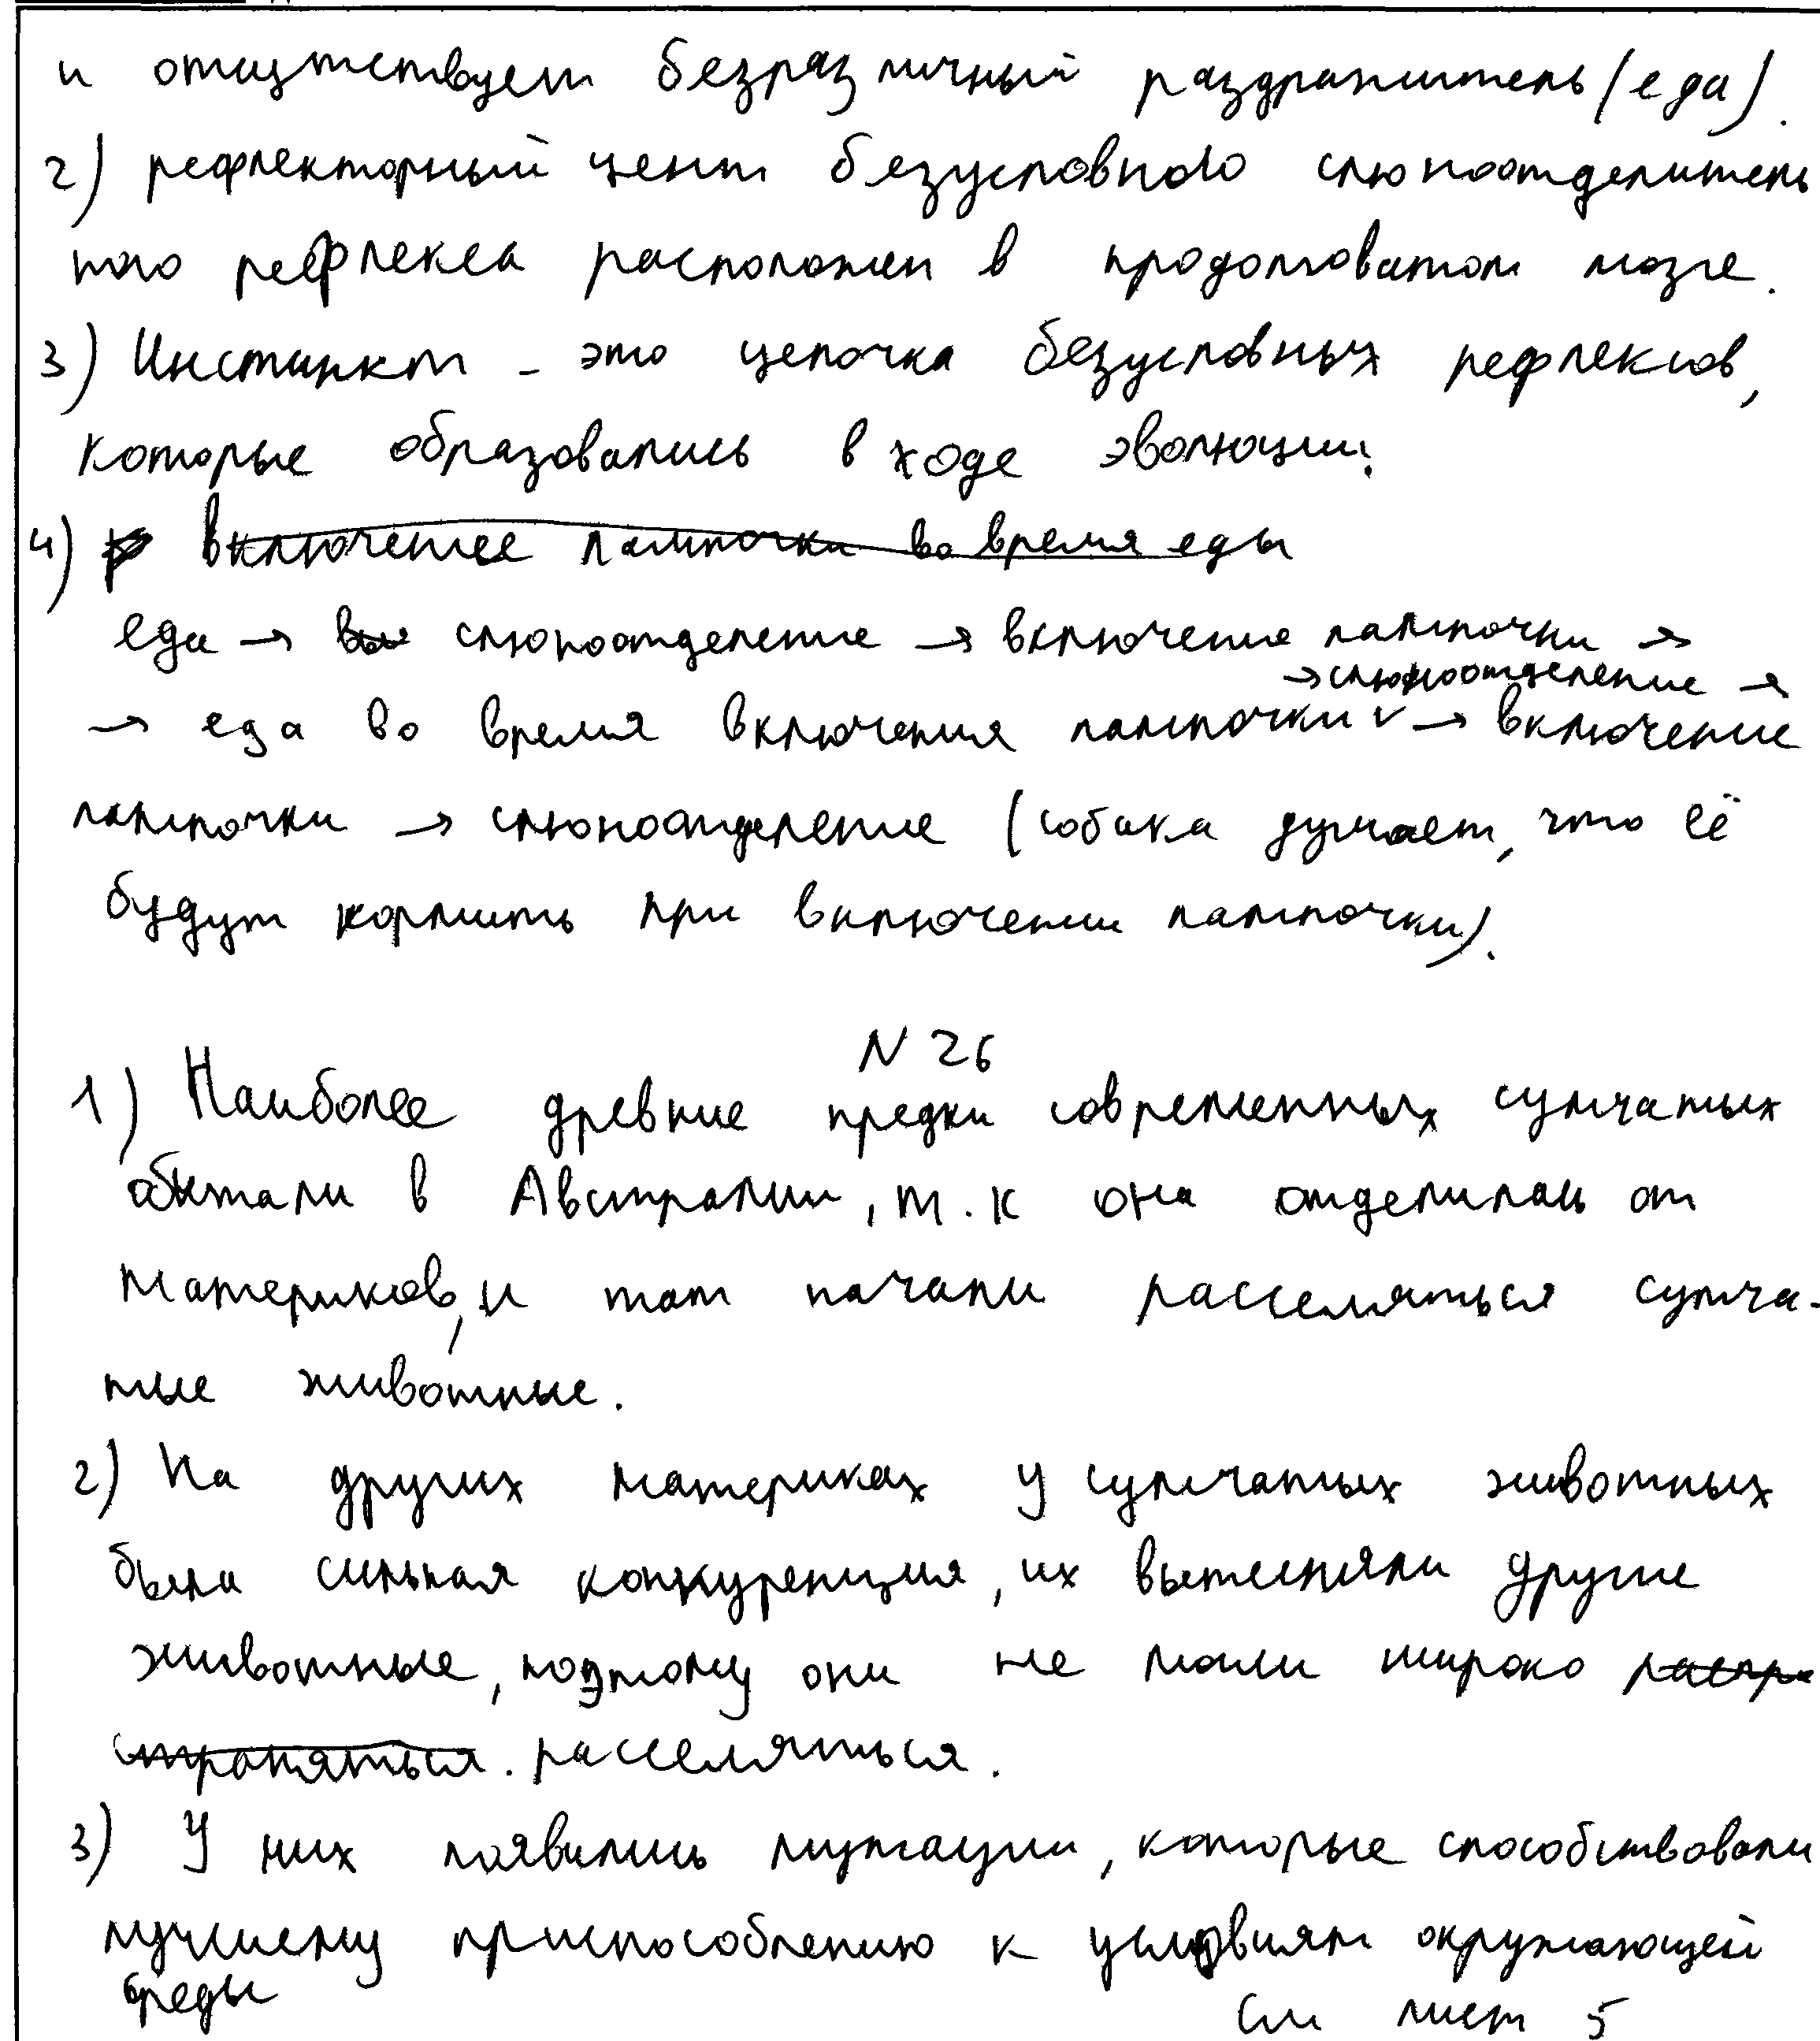 и отсутствует безразличный раздражитель (еда).
2) рефлекторный цент безусловного слюноотделитель
ного рефлекса расположен в продолговатом мозге.
3) Инстинкт - это цепочка безусловных рефлексов,
которые образовались в ходе эволюции.
4) включение лампочки во время еды
еда → слюноотделение → включение лампочки →
→ слюноотделение →
→ еда во время включения лампочки ∨ → включение
лампочки → слюноотделение (собака думает, что её
будут кормить при включении лампочки).
N 26
1) Наиболее древние предки современных сумчатых
обитали в Австралии, т.к она отделилась от
материков, и там начали расселяться сумча-
тые животные.
2) На других материках у сумчатых животных
была сильная конкуренция, их вытесняли другие
животные, поэтому они не могли широко распро
страняться. расселяться.
3) У них появились мутации, которые способствовали
лучшему приспособлению к условиям окружающей
среды
См лист 5